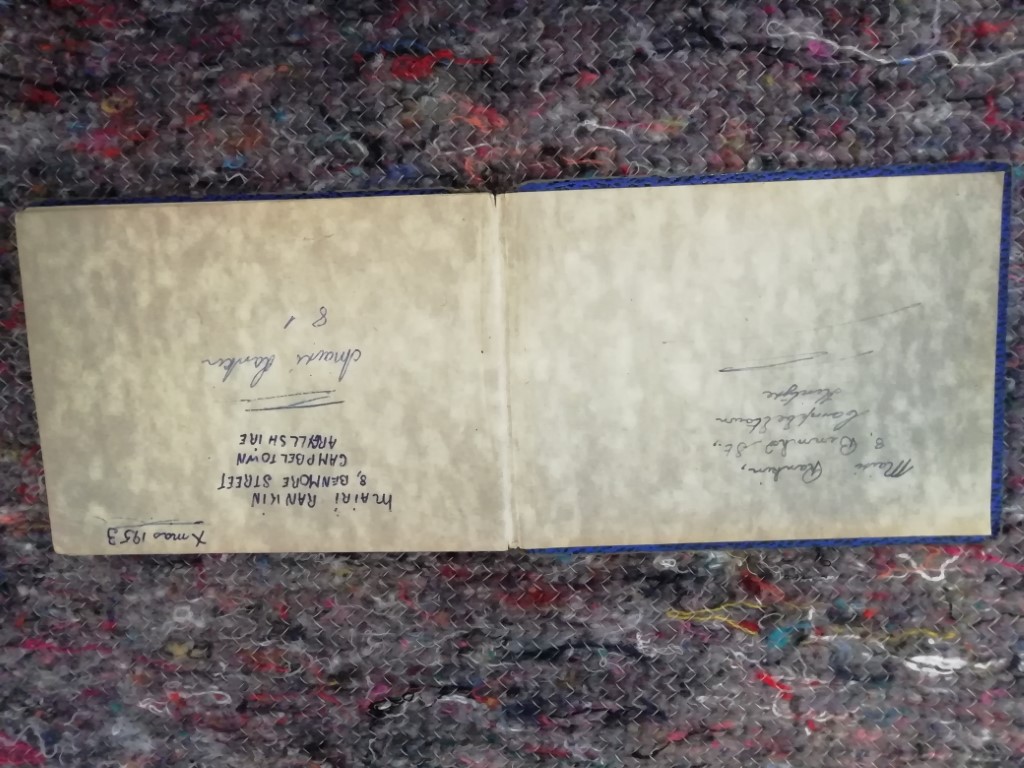 Mairi Rankin,
8, Benmhò St.,
Campbeltown
Kintyre
Xmas 1953
MAIRI RANKIN
8, BENMORE STREET
CAMPBELTOWN
ARGYLLSHIRE
Mairi Rankin
8